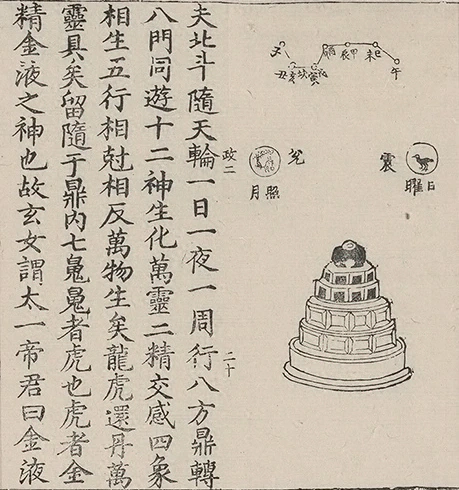 午
巳未
甲辰
震
日曜
兌
照月
政二
二十
夫北斗隨天輪一日一夜一周行八方鼎轉
八門同遊十二神生化萬靈二精交感四象
相生五行相尅相反萬物生矣龍虎還丹萬
靈具矣留隨于鼎內七者虎也虎者金
精金液之神也故玄女謂太一帝君曰金液